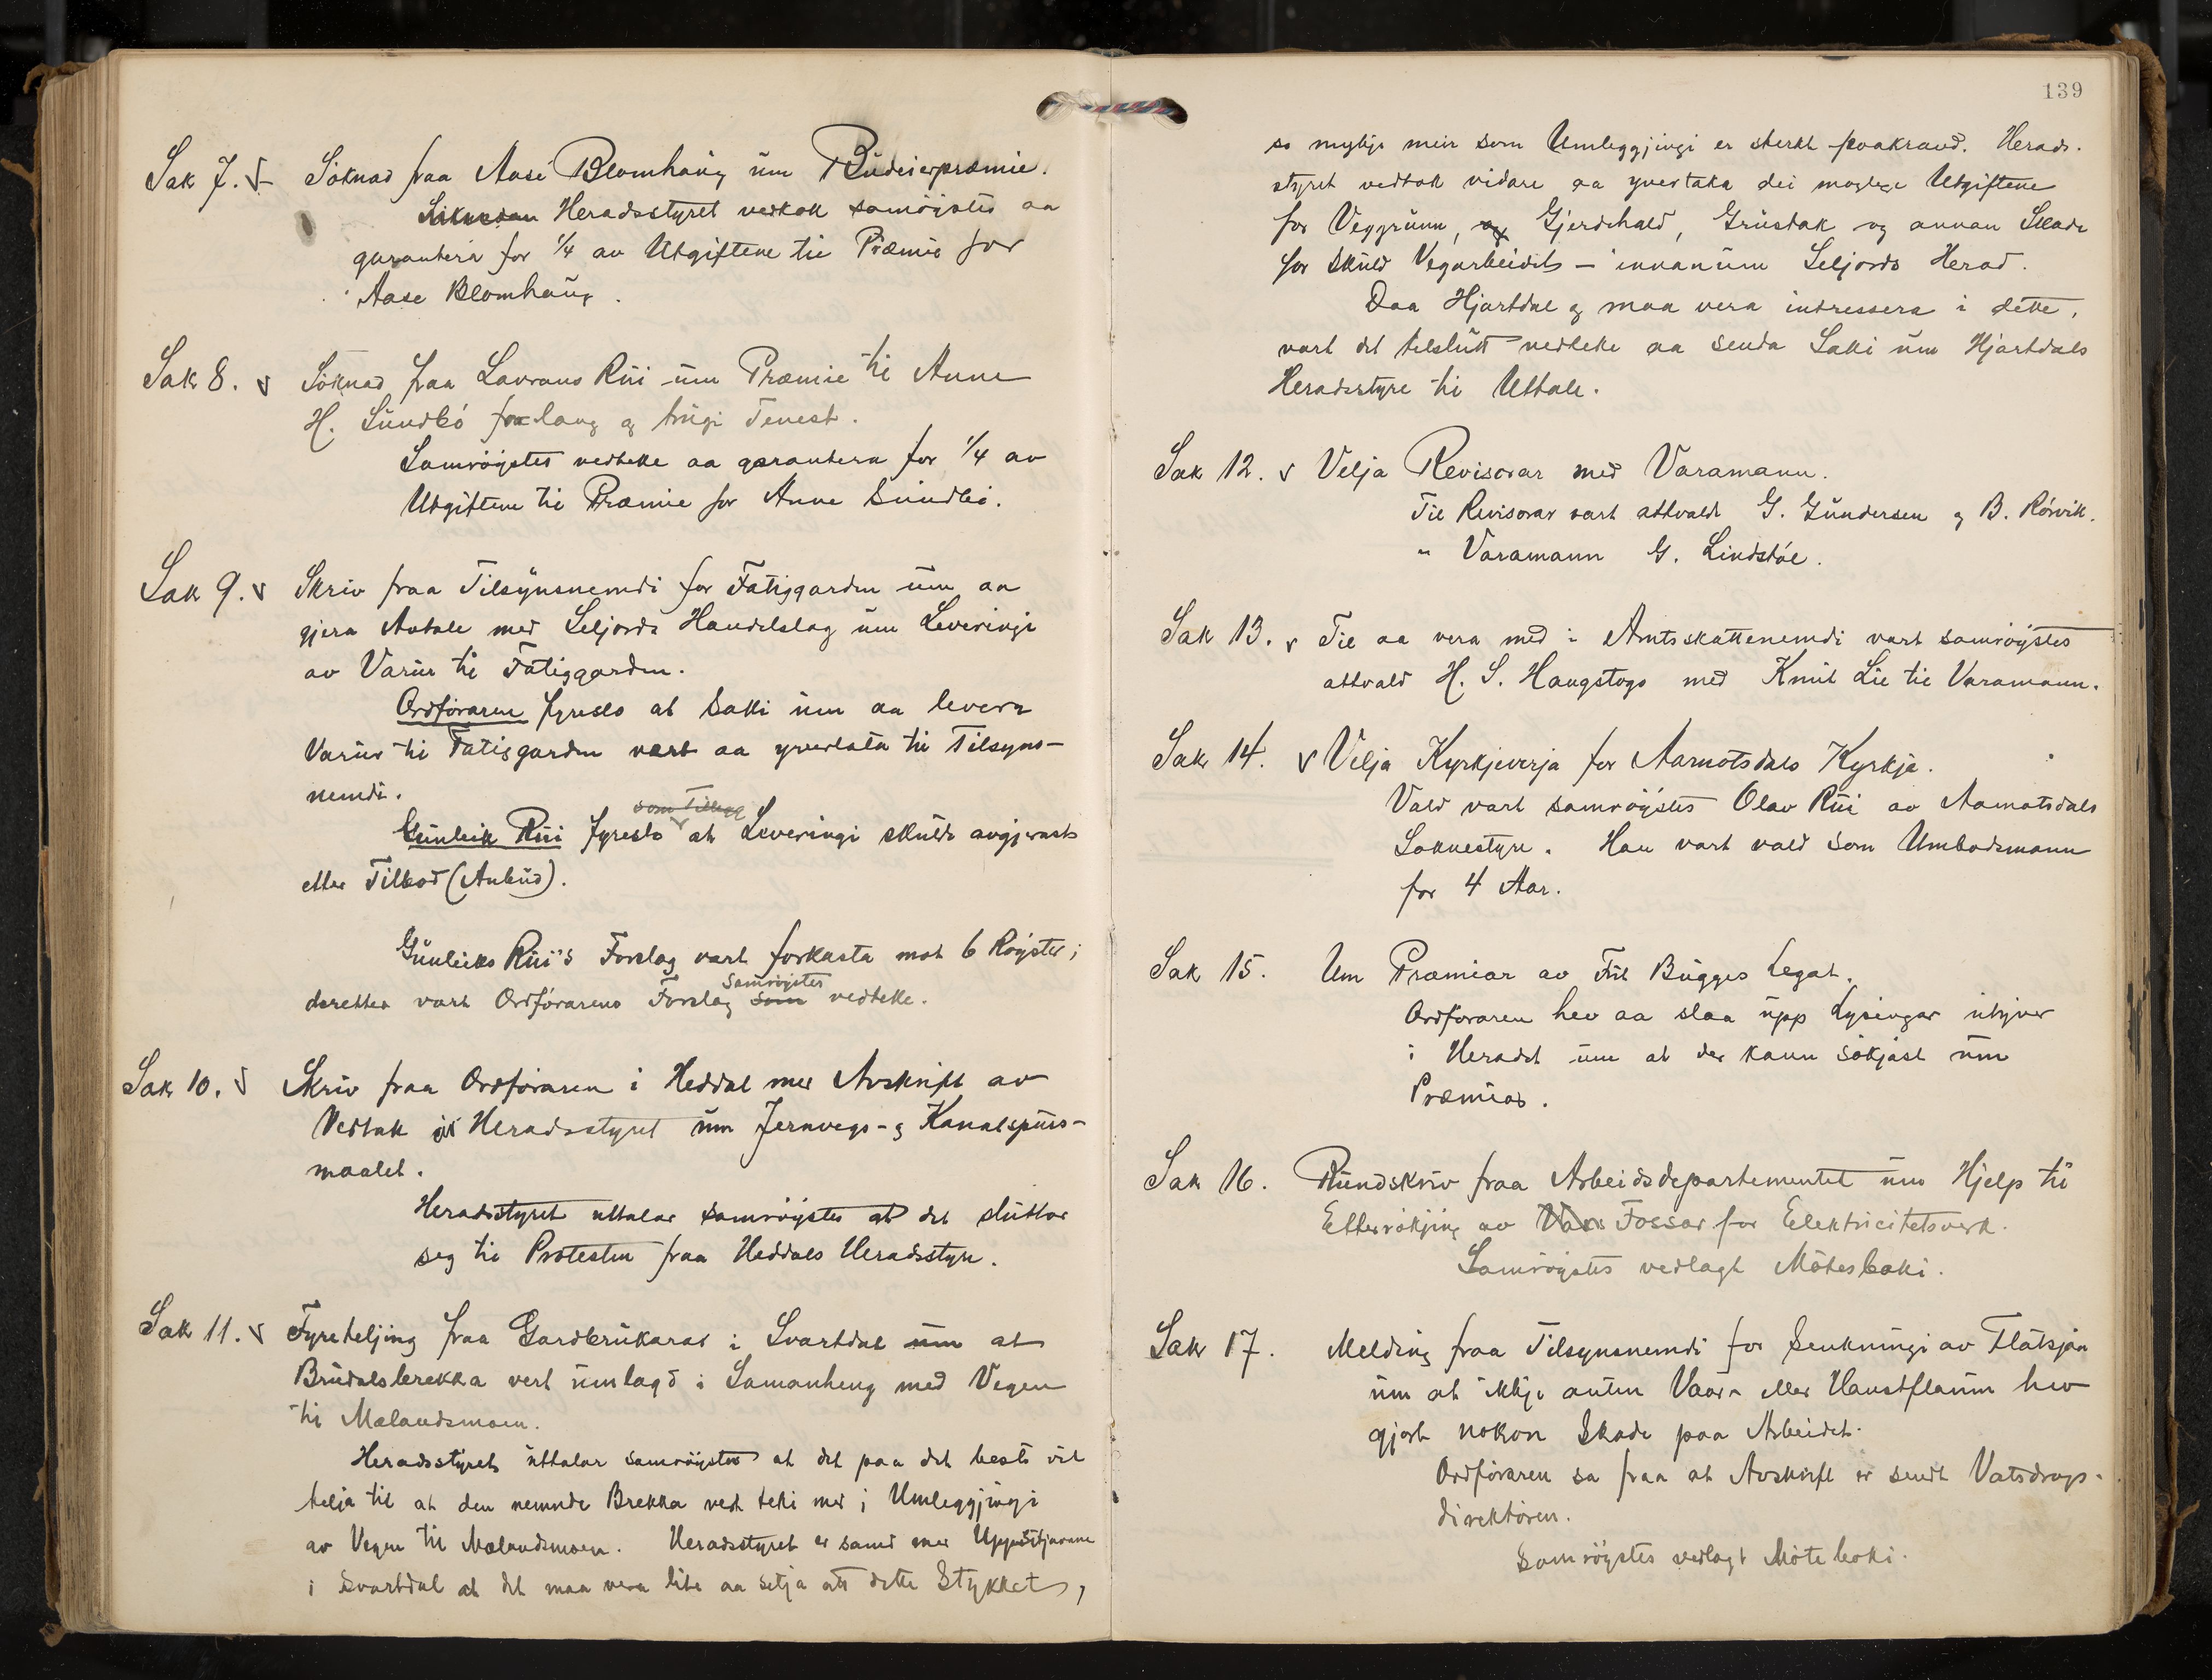 Sak 7. Söknad fraa Aase Blomhaug um Budeiepræmie.
Heradsstyret vedtok samröystes aa
garantera for 1/4 av Utgiftene til Præmie for
Aase Blomhaug.
Sak 8. Söknad fraa Lavrans Rui um Præmie til Anne
H. Sundbö for lang og trugi Tenest.
Samröystes vedteke aa garantera for 1/4 av
Utgiftene til Præmie for Anne Sundbö.
Sak 9. Skriv fraa Tilsynsnemdi for Fatiggarden um aa
gjera Avtale med Seljords Handelslag um Leveringi
av Varur til Fatiggarden.
Ordföraren fyreslo at Saki um aa levera
Varur til Fatiggarden vert aa yverlata til Tilsyns-
nemdi.
som Tillegg
Gunleik Rui fyreslo at Leveringi skulde avgjerast
etter Tilbod (Anbud).
Gunleiks Rui's Forslag vart forkasta mot 6 Röyster;
samröystes
deretter vart Ordförarens Forslag som vedteke.
Sak 10. Skriv fraa Ordföraren i Heddal med Avskrift av
Vedtak i Heradsstyret um Jernvegs- og Kanalspurs-
maalet.
Heradsstyret uttalar samröystes at det sluttar
seg til Protesten fraa Heddals Heradsstyre.
Sak 11. Fyreteljing fraa Gardbrukarar i Svartdal um at
Brudalsbrekka vert umlagd i Samanheng med Vegen
til Mælandsmoen.
Heradsstyret uttalar samröystes at det paa det beste vil
telja til at den nemnde Brekka vert teki med i Umleggjingi
av Vegen til Mælandsmoen. Heradsstyret er samd med Uppsitjarane
i Svartdal at det maa vera lite aa setja att dette Stykket,
139
so mykje meir som Umleggjingi er sterkt paakravd. Herads-
styret vedtok vidare aa yvertaka dei moglege Utgiftene
for Veggrunn, og Gjerdehald, Grustak og annan Skade
for skuld Vegarbeidet – innanum Seljords Herad.
Daa Hjartdal og maa vera intressera i dette,
vart det tilslutt vedteke aa senda Saki um Hjartdals
Heradsstyre til Uttale.
Sak 12. Velja Revisorar med Varamann.
Til Revisorar vart attvalde G. Gundersen og B. Rörvik.
" Varamann G. Lindstöl.
Sak 13. Til aa vera med i Amtsskattenemdi vart samröystes
attvald H. S. Haugstogo med Knut Lie til Varamann.
Sak 14. Velja Kyrkjeverja for Aamotsdals Kyrkje.
Vald vart samröystes Olav Rui av Aamotsdals
Soknestyre. Han vart vald som Umbodsmann
for 4 Aar.
Sak 15. Um Præmiar av Frk Bugges Legat.
Ordföraren hev aa slaa upp Lysingar utyver
i Heradet um at der kann sökjast um
Præmiar.
Sak 16. Rundskriv fraa Arbeidsdepartementet um Hjelp til
Etterrökjing av Fossar for Elektricitetsverk.
Samröystes vedlagt Mötesboki.
Sak 17. Melding fraa Tilsynsnemdi for Senkningi av Flatsjaa
um at ikkje anten Vaar- eller Haustflaum hev
gjort nokon Skade paa Arbeidet.
Ordföraren sa fraa at Avskrift er sendt Vatsdrags-
direktören.
Samröystes vedlagt Möteboki.